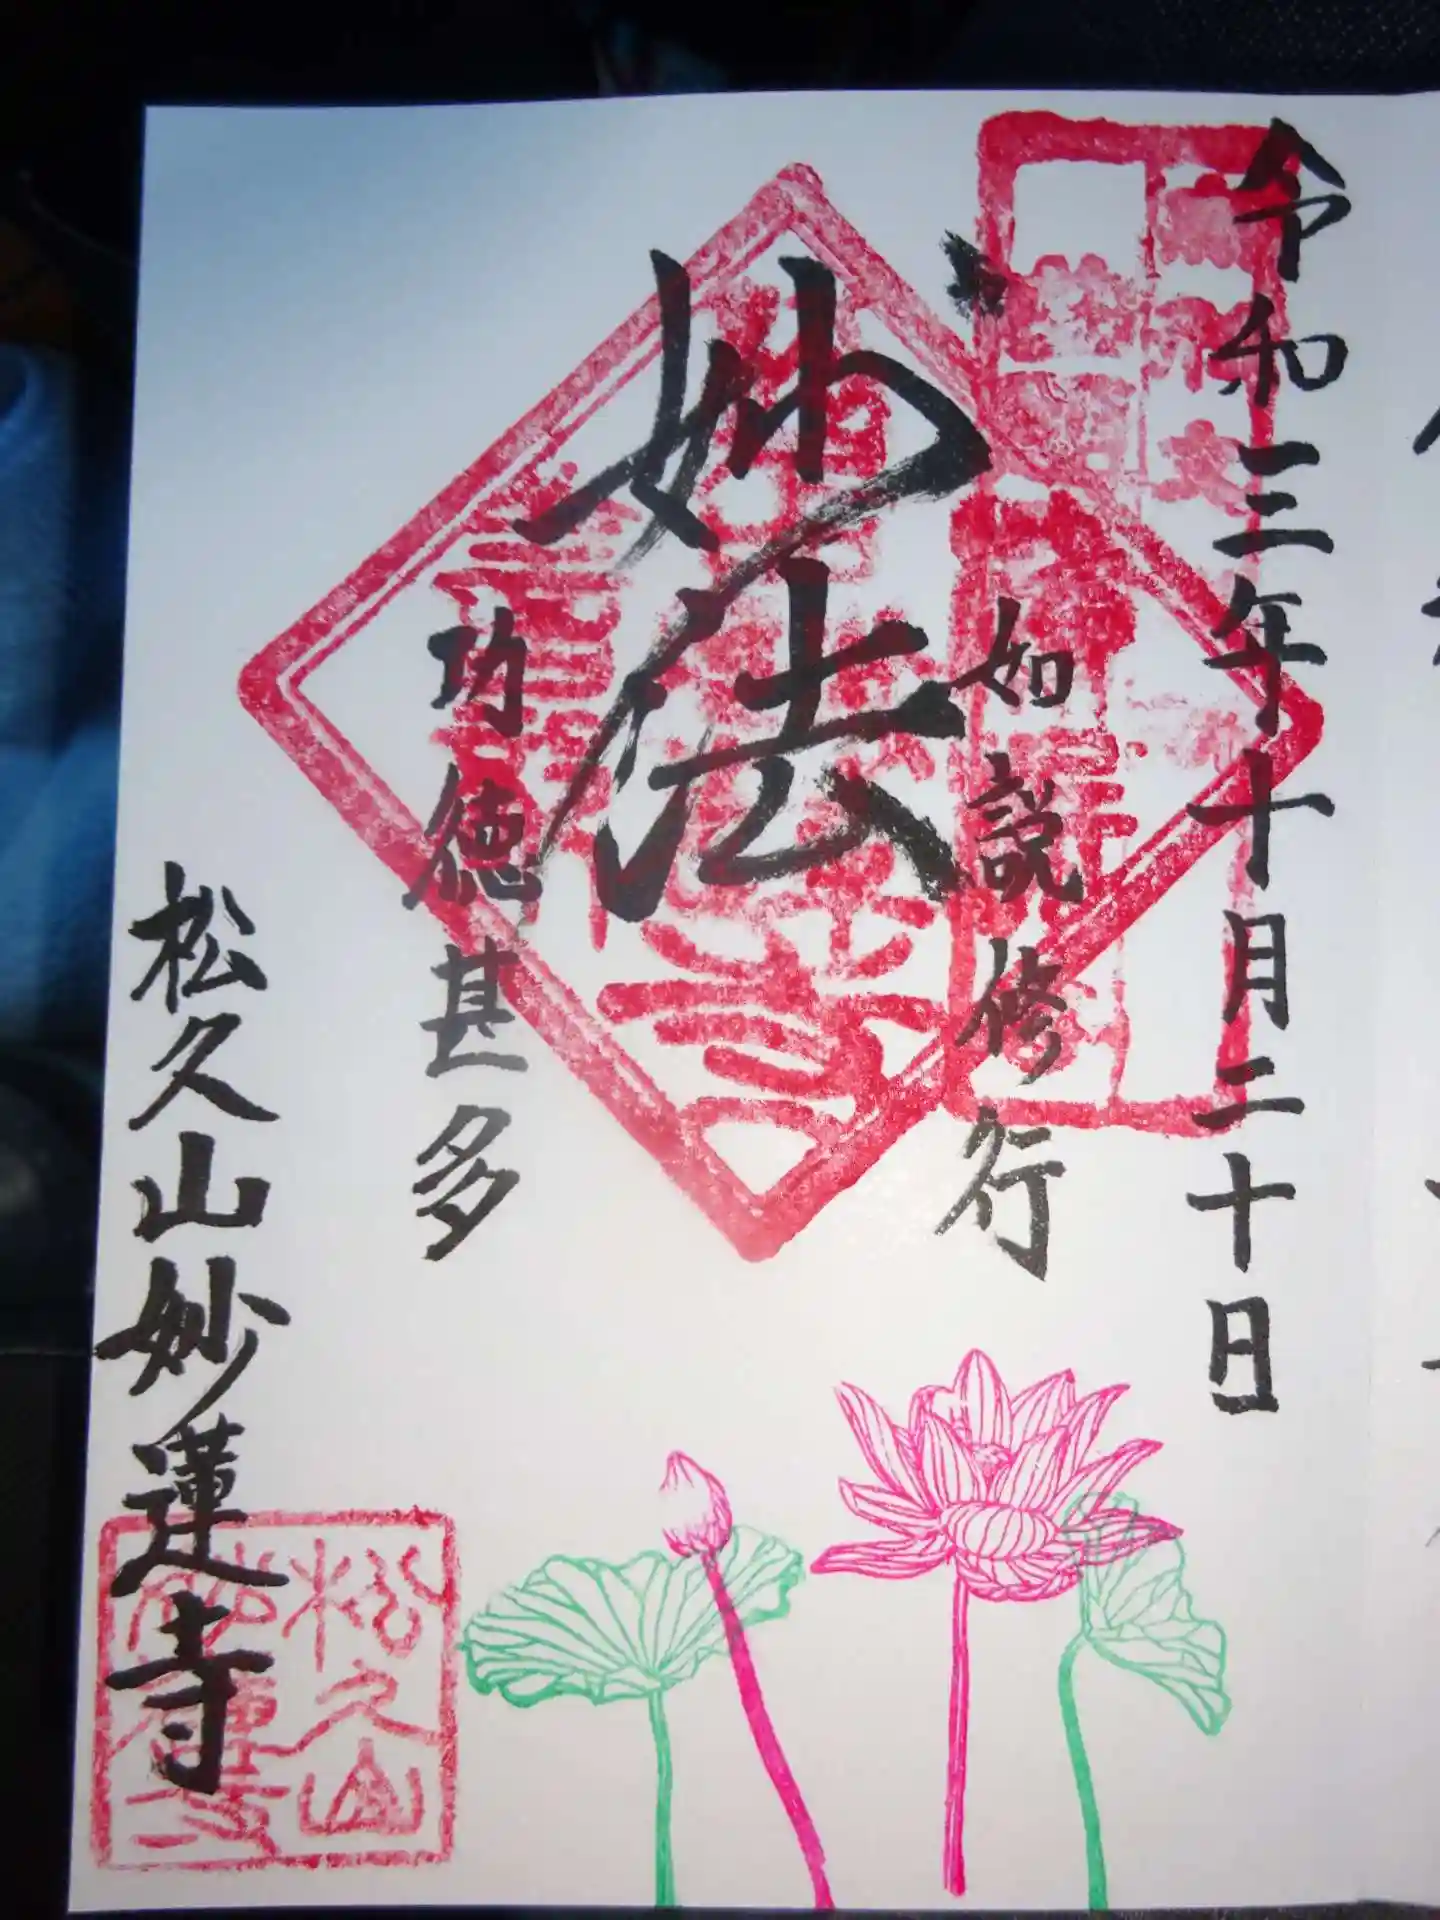 令和三年十月二十日
如説修行
妙法
功徳甚多
松久山妙蓮寺
松久山
妙蓮寺